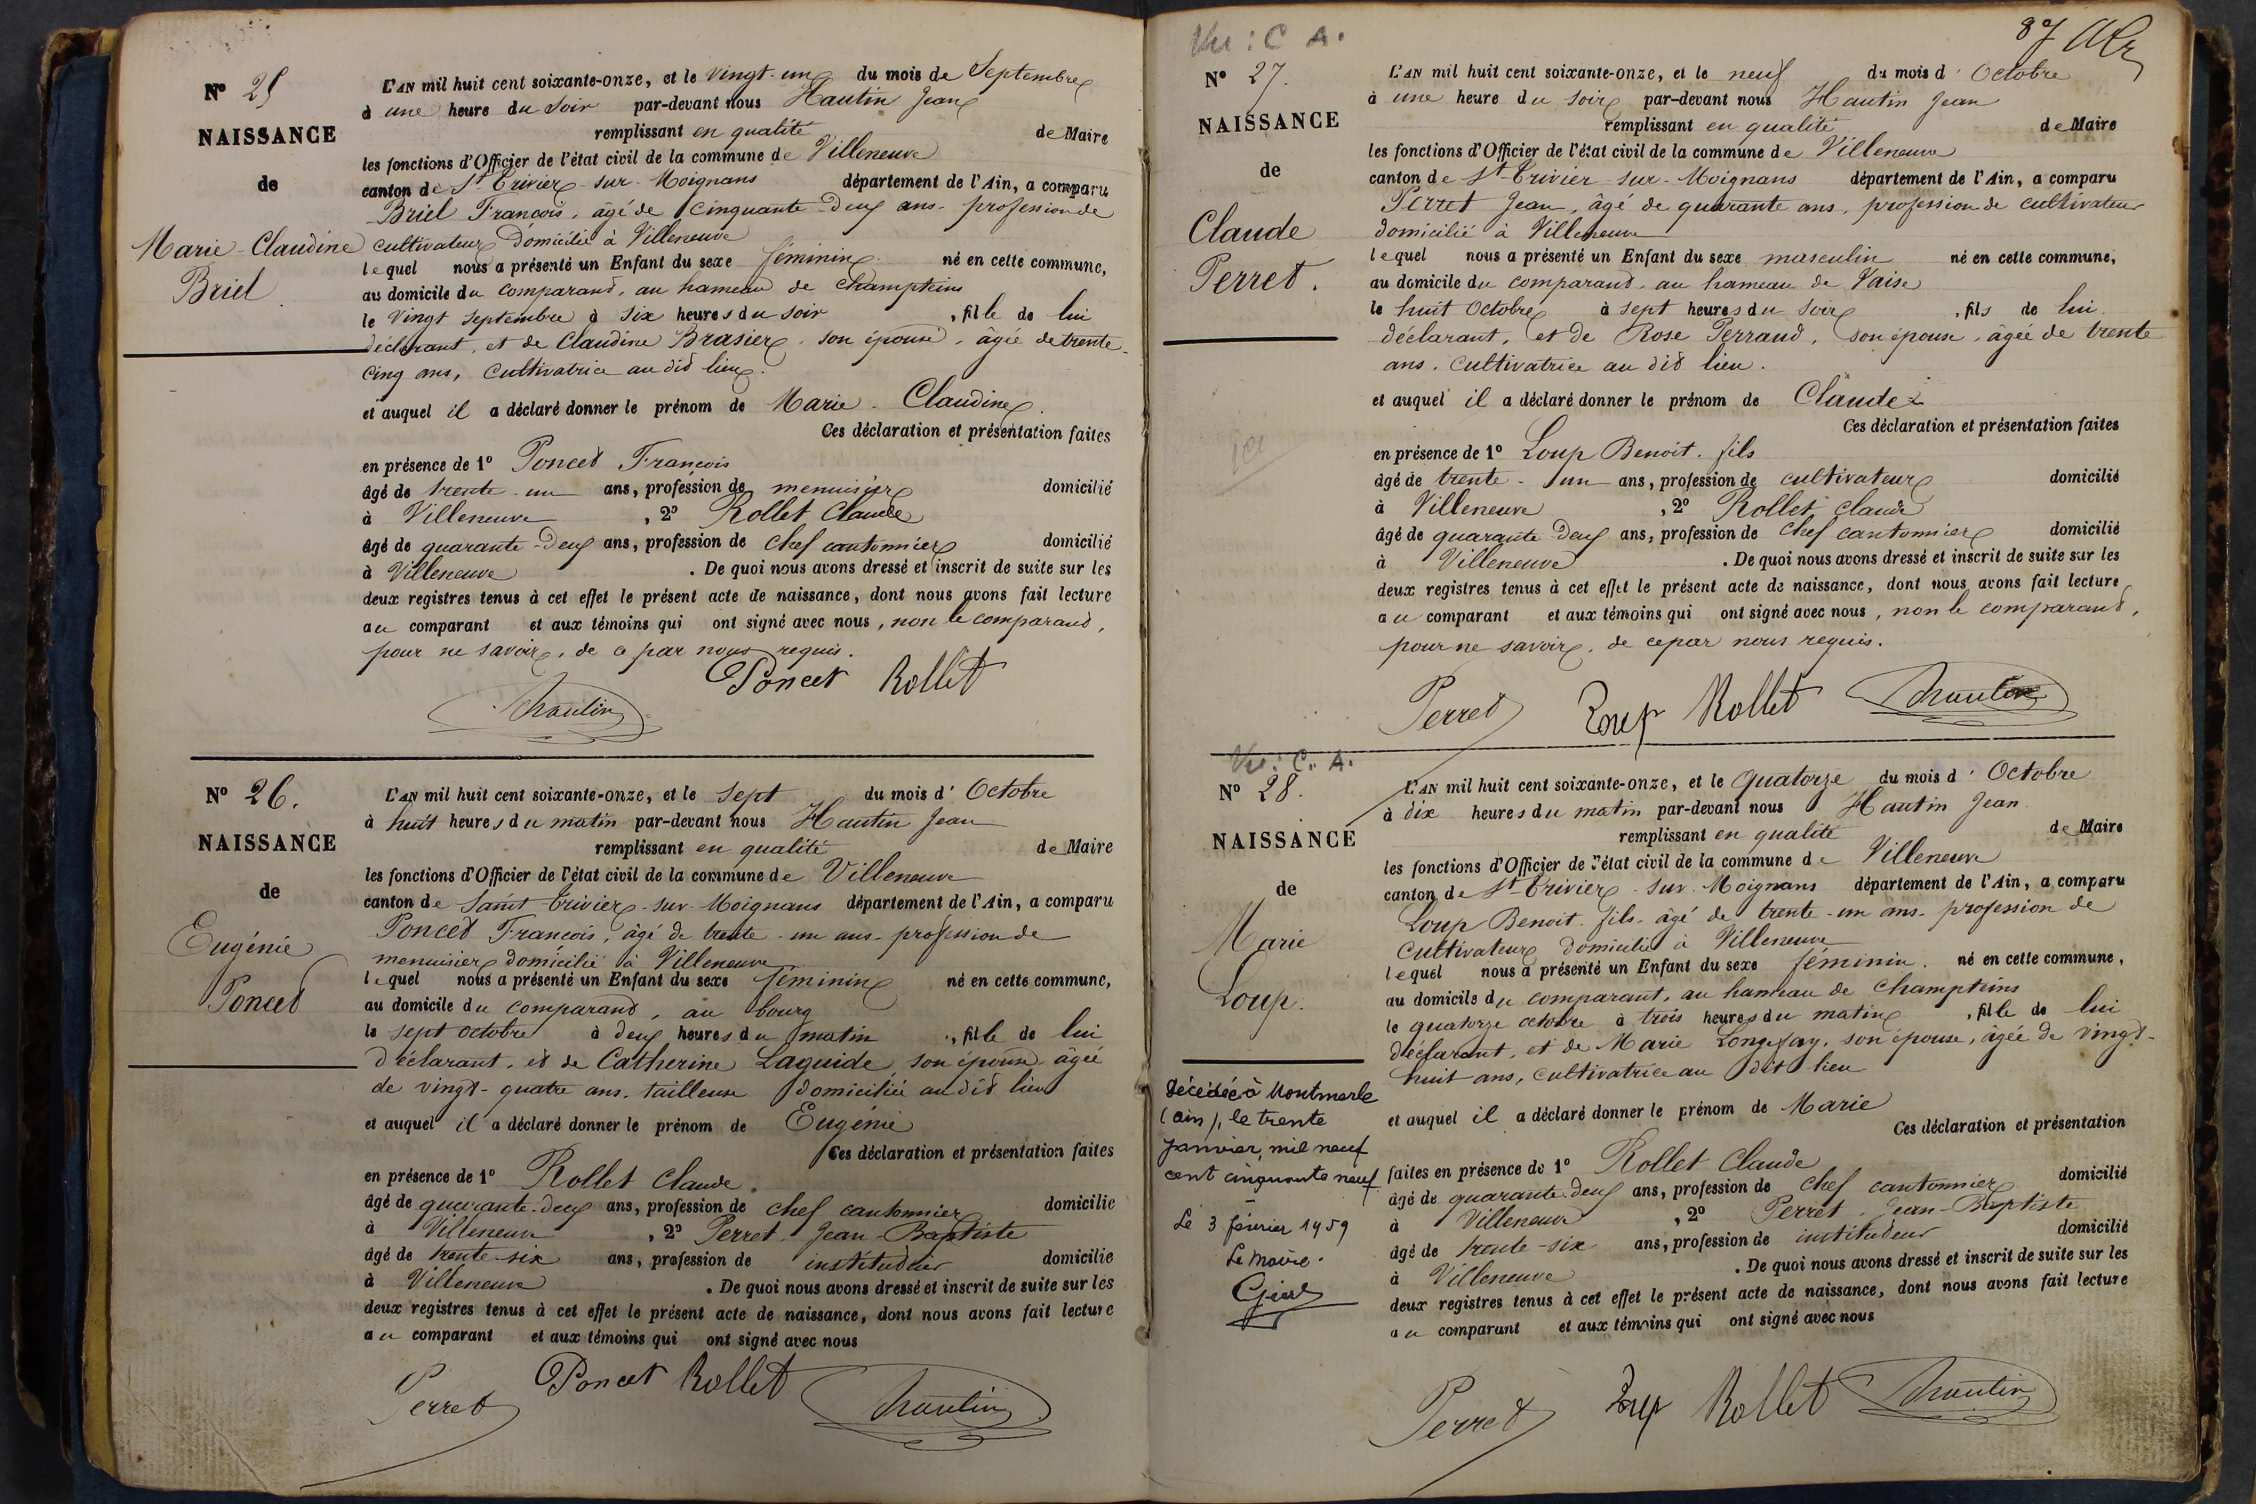 N° 25
NAISSANCE
de
Marie-Claudine
Briel
L'AN mil huit cent soixante-onze, et le vingt-un du mois de Septembre
à une heure du soir par-devant nous Hautin Jean
remplissant en qualité de Maire
les fonctions d'Officier de l'état civil de la commune de Villeneuve
canton de St Trivier-sur-Moignans département de l'Ain, a comparu
Briel François, âgé de cinquante-deux ans. profession de
cultivateur domicilié à Villeneuve
lequel nous a présenté un Enfant du sexe féminin né en cette commune,
au domicile du comparand, au hameau de Champteins
le vingt septembre à six heures du soir, fille de lui
déclarant, et de Claudine Brasier, son épouse, âgée de trente-
cinq ans, cultivatrice au dit lieu.
et auquel il a déclaré donner le prénom de Marie-Claudine.
Ces déclaration et présentation faites
en présence de 1° Poncet François
âgé de trente-un ans, profession de menuisier domicilié
à Villeneuve, 2° Rollet Claude
âgé de quarante-deux ans, profession de chef cantonnier domicilié
à Villeneuve. De quoi nous avons dressé et inscrit de suite sur les
deux registres tenus à cet effet le présent acte de naissance, dont nous avons fait lecture
au comparant et aux témoins qui ont signé avec nous, non le comparand,
pour ne savoir, de ce par nous requis.
Poncet Rollet
Hautin
N° 26.
NAISSANCE
de
Eugénie
Poncet
L'AN mil huit cent soixante-onze, et le sept du mois d'Octobre
à huit heures du matin par-devant nous Hautin Jean
remplissant en qualité de Maire
les fonctions d'Officier de l'état civil de la commune de Villeneuve
canton de Saint Trivier-sur-Moignans département de l'Ain, a comparu
Poncet François, âgé de trente-un ans. profession de
menuisier domicilié à Villeneuve
lequel nous a présenté un Enfant du sexe féminin né en cette commune,
au domicile du comparand, au bourg
le sept octobre à deux heures du matin, fille de lui
déclarant, et de Catherine Laguide, son épouse âgée
de vingt-quatre ans, tailleuse domiciliée au dit lieu
et auquel il a déclaré donner le prénom de Eugénie
Ces déclaration et présentation faites
en présence de 1° Rollet Claude.
âgé de quarante-deux ans, profession de chef cantonnier domicilié
à Villeneuve, 2° Perret Jean-Baptiste
âgé de trente-six ans, profession de instituteur domicilié
à Villeneuve. De quoi nous avons dressé et inscrit de suite sur les
deux registres tenus à cet effet le présent acte de naissance, dont nous avons fait lecture
au comparant et aux témoins qui ont signé avec nous
Perret Poncet Rollet Hautin
87
Vu : C A.
N° 27.
NAISSANCE
de
Claude
Perret.
L'AN mil huit cent soixante-onze, et le neuf du mois d'Octobre
à une heure du soir par-devant nous Hautin Jean
remplissant en qualité de Maire
les fonctions d'Officier de l'état civil de la commune de Villeneuve
canton de St Trivier-sur-Moignans département de l'Ain, a comparu
Perret Jean, âgé de quarante ans, profession de cultivateur
domicilié à Villeneuve
lequel nous a présenté un Enfant du sexe masculin né en cette commune,
au domicile du comparand, au hameau de Vaise
le huit Octobre à sept heures du soir, fils de lui
déclarant, et de Rose Perraud, son épouse, âgée de trente
ans, cultivatrice au dit lieu.
et auquel il a déclaré donner le prénom de Claude
Ces déclaration et présentation faites
en présence de 1° Loup Benoit fils
âgé de trente-un ans, profession de cultivateur domicilié
à Villeneuve, 2° Rollet Claude
âgé de quarante-deux ans, profession de chef cantonnier domicilié
à Villeneuve. De quoi nous avons dressé et inscrit de suite sur les
deux registres tenus à cet effet le présent acte de naissance, dont nous avons fait lecture
au comparant et aux témoins qui ont signé avec nous, non le comparand,
pour ne savoir, de ce par nous requis.
Perret Loup Rollet Hautin
Vu : C. A.
N° 28.
NAISSANCE
de
Marie
Loup.
L'AN mil huit cent soixante-onze, et le quatorze du mois d'Octobre
à dix heures du matin par-devant nous Hautin Jean
remplissant en qualité de Maire
les fonctions d'Officier de l'état civil de la commune de Villeneuve
canton de St Trivier-sur-Moignans département de l'Ain, a comparu
Loup Benoit fils, âgé de trente-un ans. profession de
cultivateur domicilié à Villeneuve
lequel nous a présenté un Enfant du sexe féminin. né en cette commune,
au domicile du comparant, au hameau de Champteins
le quatorze octobre à trois heures du matin, fille de lui
déclarant, et de Marie Longefay, son épouse, âgée de vingt-
huit ans, cultivatrice au dit lieu
et auquel il a déclaré donner le prénom de Marie
Ces déclaration et présentation
faites en présence de 1° Rollet Claude
âgé de quarante-deux ans, profession de chef cantonnier domicilié
à Villeneuve, 2° Perret Jean-Baptiste
âgé de trente-six ans, profession de instituteur domicilié
à Villeneuve. De quoi nous avons dressé et inscrit de suite sur les
deux registres tenus à cet effet le présent acte de naissance, dont nous avons fait lecture
au comparant et aux témoins qui ont signé avec nous
Perret Loup Rollet Hautin
Décédée à Montmerle
(Ain), le trente
janvier, mil neuf
cent cinquante neuf
Le 3 février 1959
Le Maire.